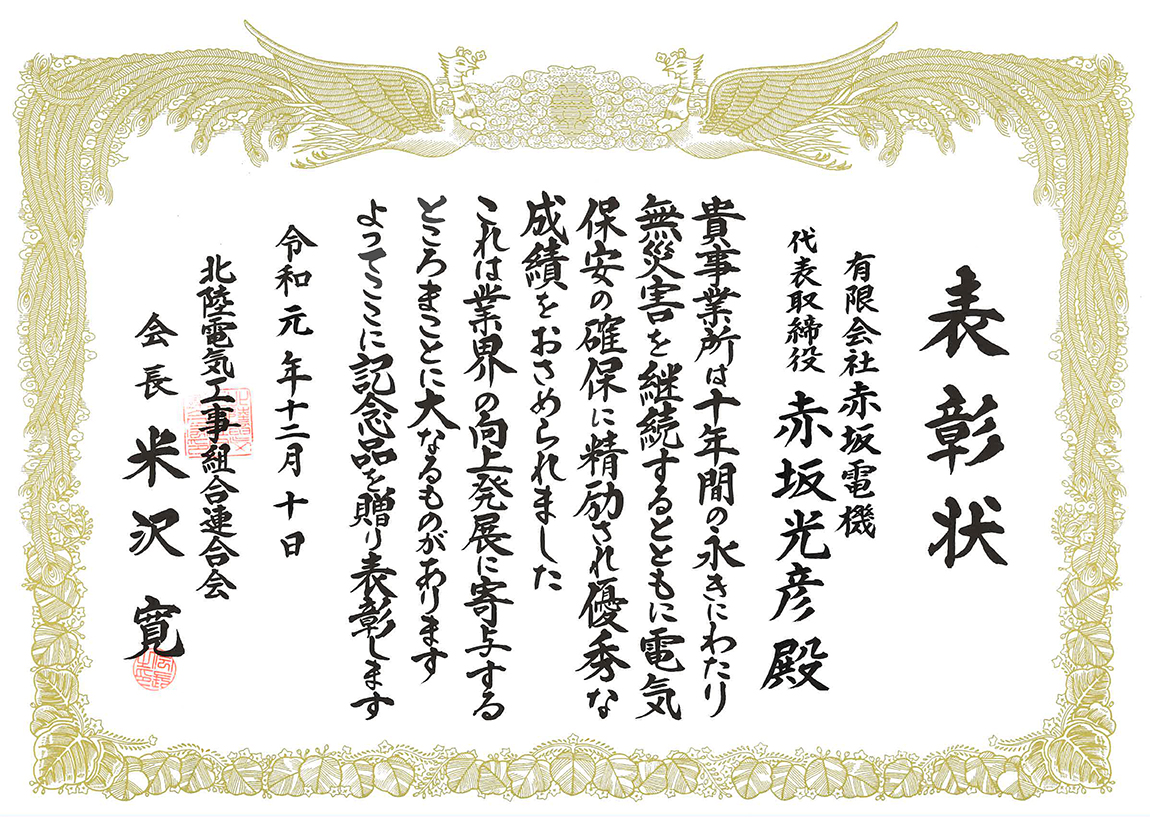 表彰状
有限会社赤坂電機
代表取締役 赤坂光彦殿
貴事業所は十年間の永きにわたり
無災害を継続するとともに電気
保安の確保に精励され優秀な
成績をおさめられました
これは業界の向上発展に寄与する
ところまことに大なるものがあります
よってここに記念品を贈り表彰します
令和元年十二月十日
北陸電気工事組合連合会
会長 米沢寛